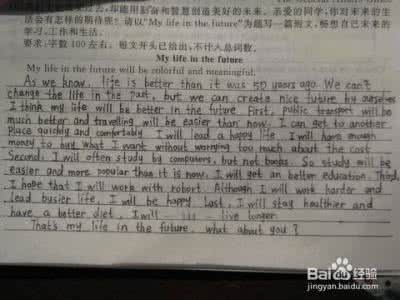 却能用勤奋和智慧创造美好的未来。亲爱的同学,你对未来的生
活会有怎样的期待呢?请以"My life in the future"为题写一篇短文,畅想自己未来的
学习、工作和生活。
要求:字数100左右,短文开头已给出,不计入总词数。
My life in the future
My life in the future will be colorful and meaningful.
As we know, life is better than it was 50 years ago. We can't
change the life in the past, but we can create nice future by ourselves
I think my life will be better in the future. First, public transport will be
much better and travelling will be easier than now, I can get to another
place quickly and comfortably. I will lead a happy life. I will have enough
money to buy what I want without worrying too much about the cost
Second, I will often study by computers, but not books. So study will be
easier and more popular than it is now, I will get an better education. Third,
I hope that I will work with robort. Although I will work harder and
lead busier life, I will be happy. Last, I will stay healthier and
have a better diet, I will live longer.
That's my life in the future, what about you?
Baidu 经验
jingyan.baidu.com